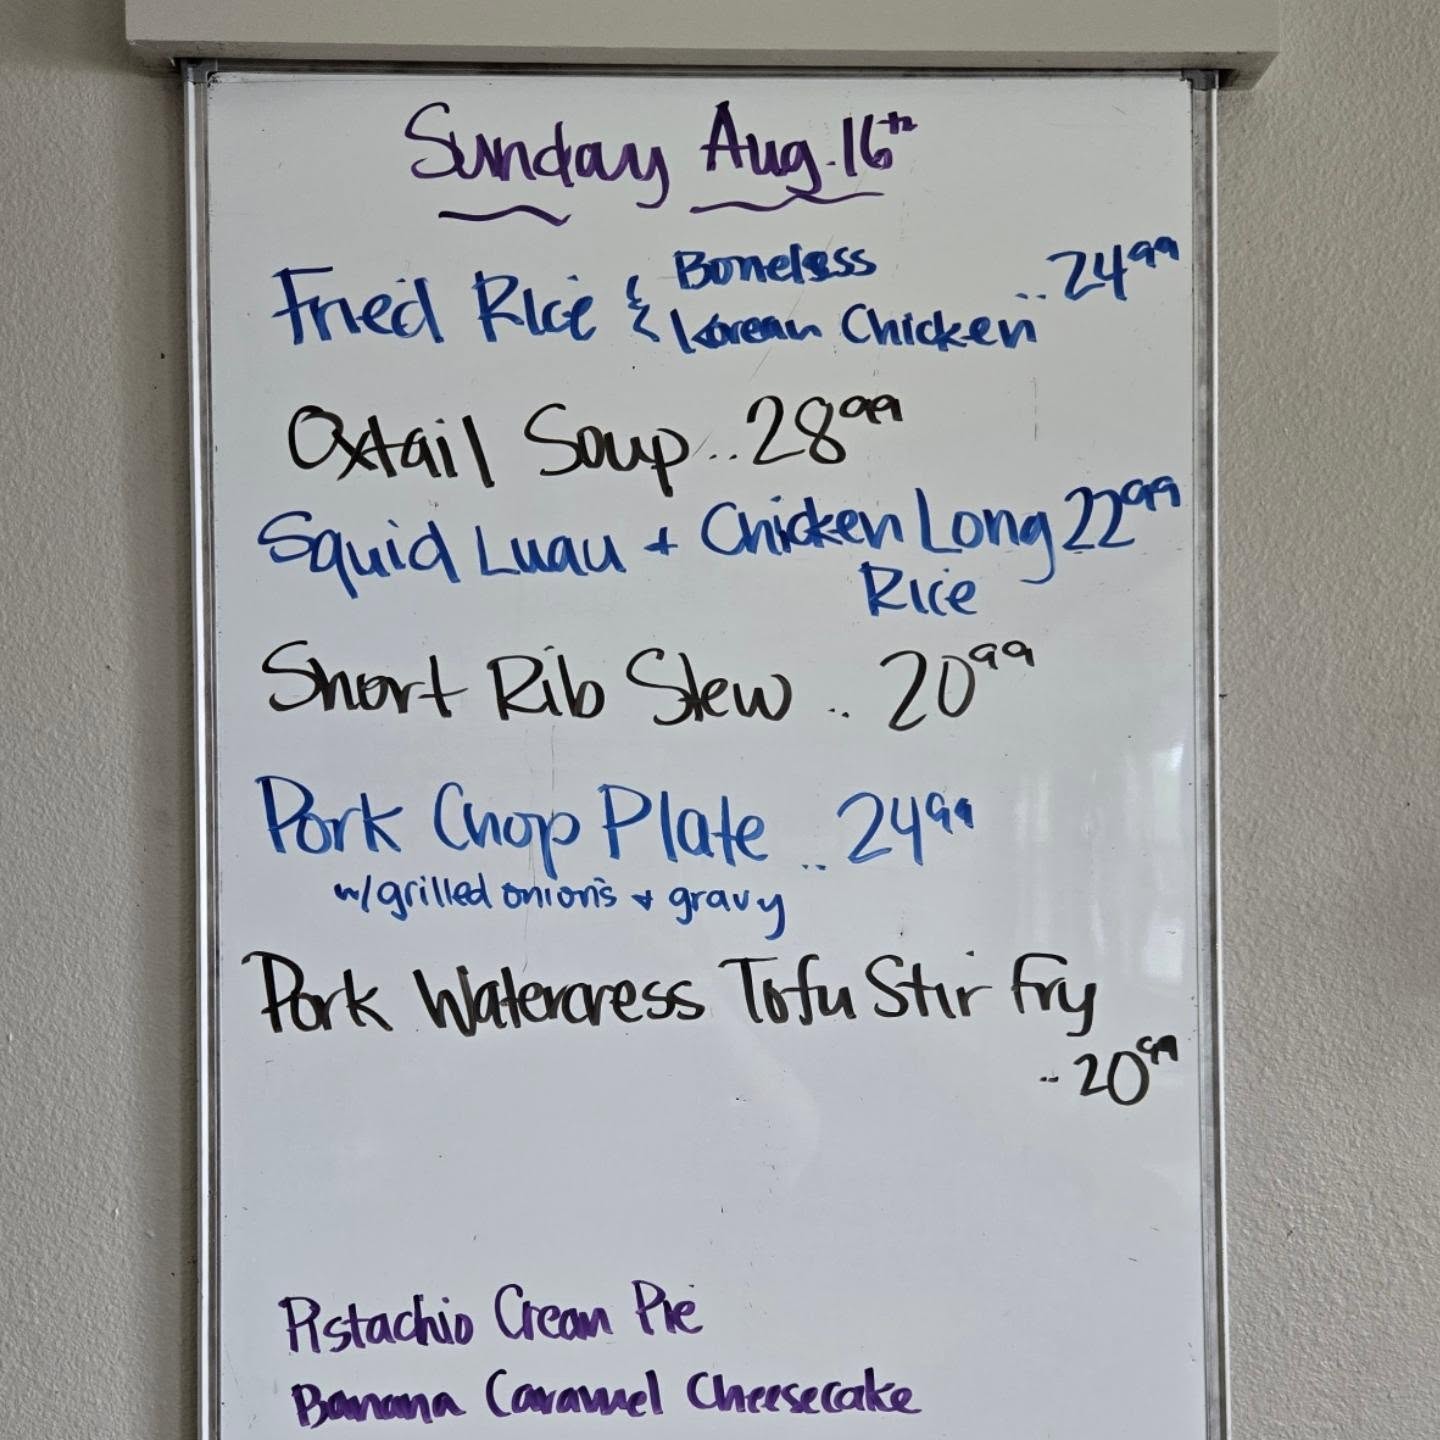 Sunday Aug. 16th
Fried Rice & Boneless Korean Chicken .. 24.99
Oxtail Soup .. 28.99
Squid Luau + Chicken Long 22.99
Rice
Short Rib Stew .. 20.99
Pork Chop Plate .. 24.99
w/grilled onions + gravy
Pork Watercress Tofu Stir Fry
.. 20.99
Pistachio Cream Pie
Banana Caramel Cheesecake